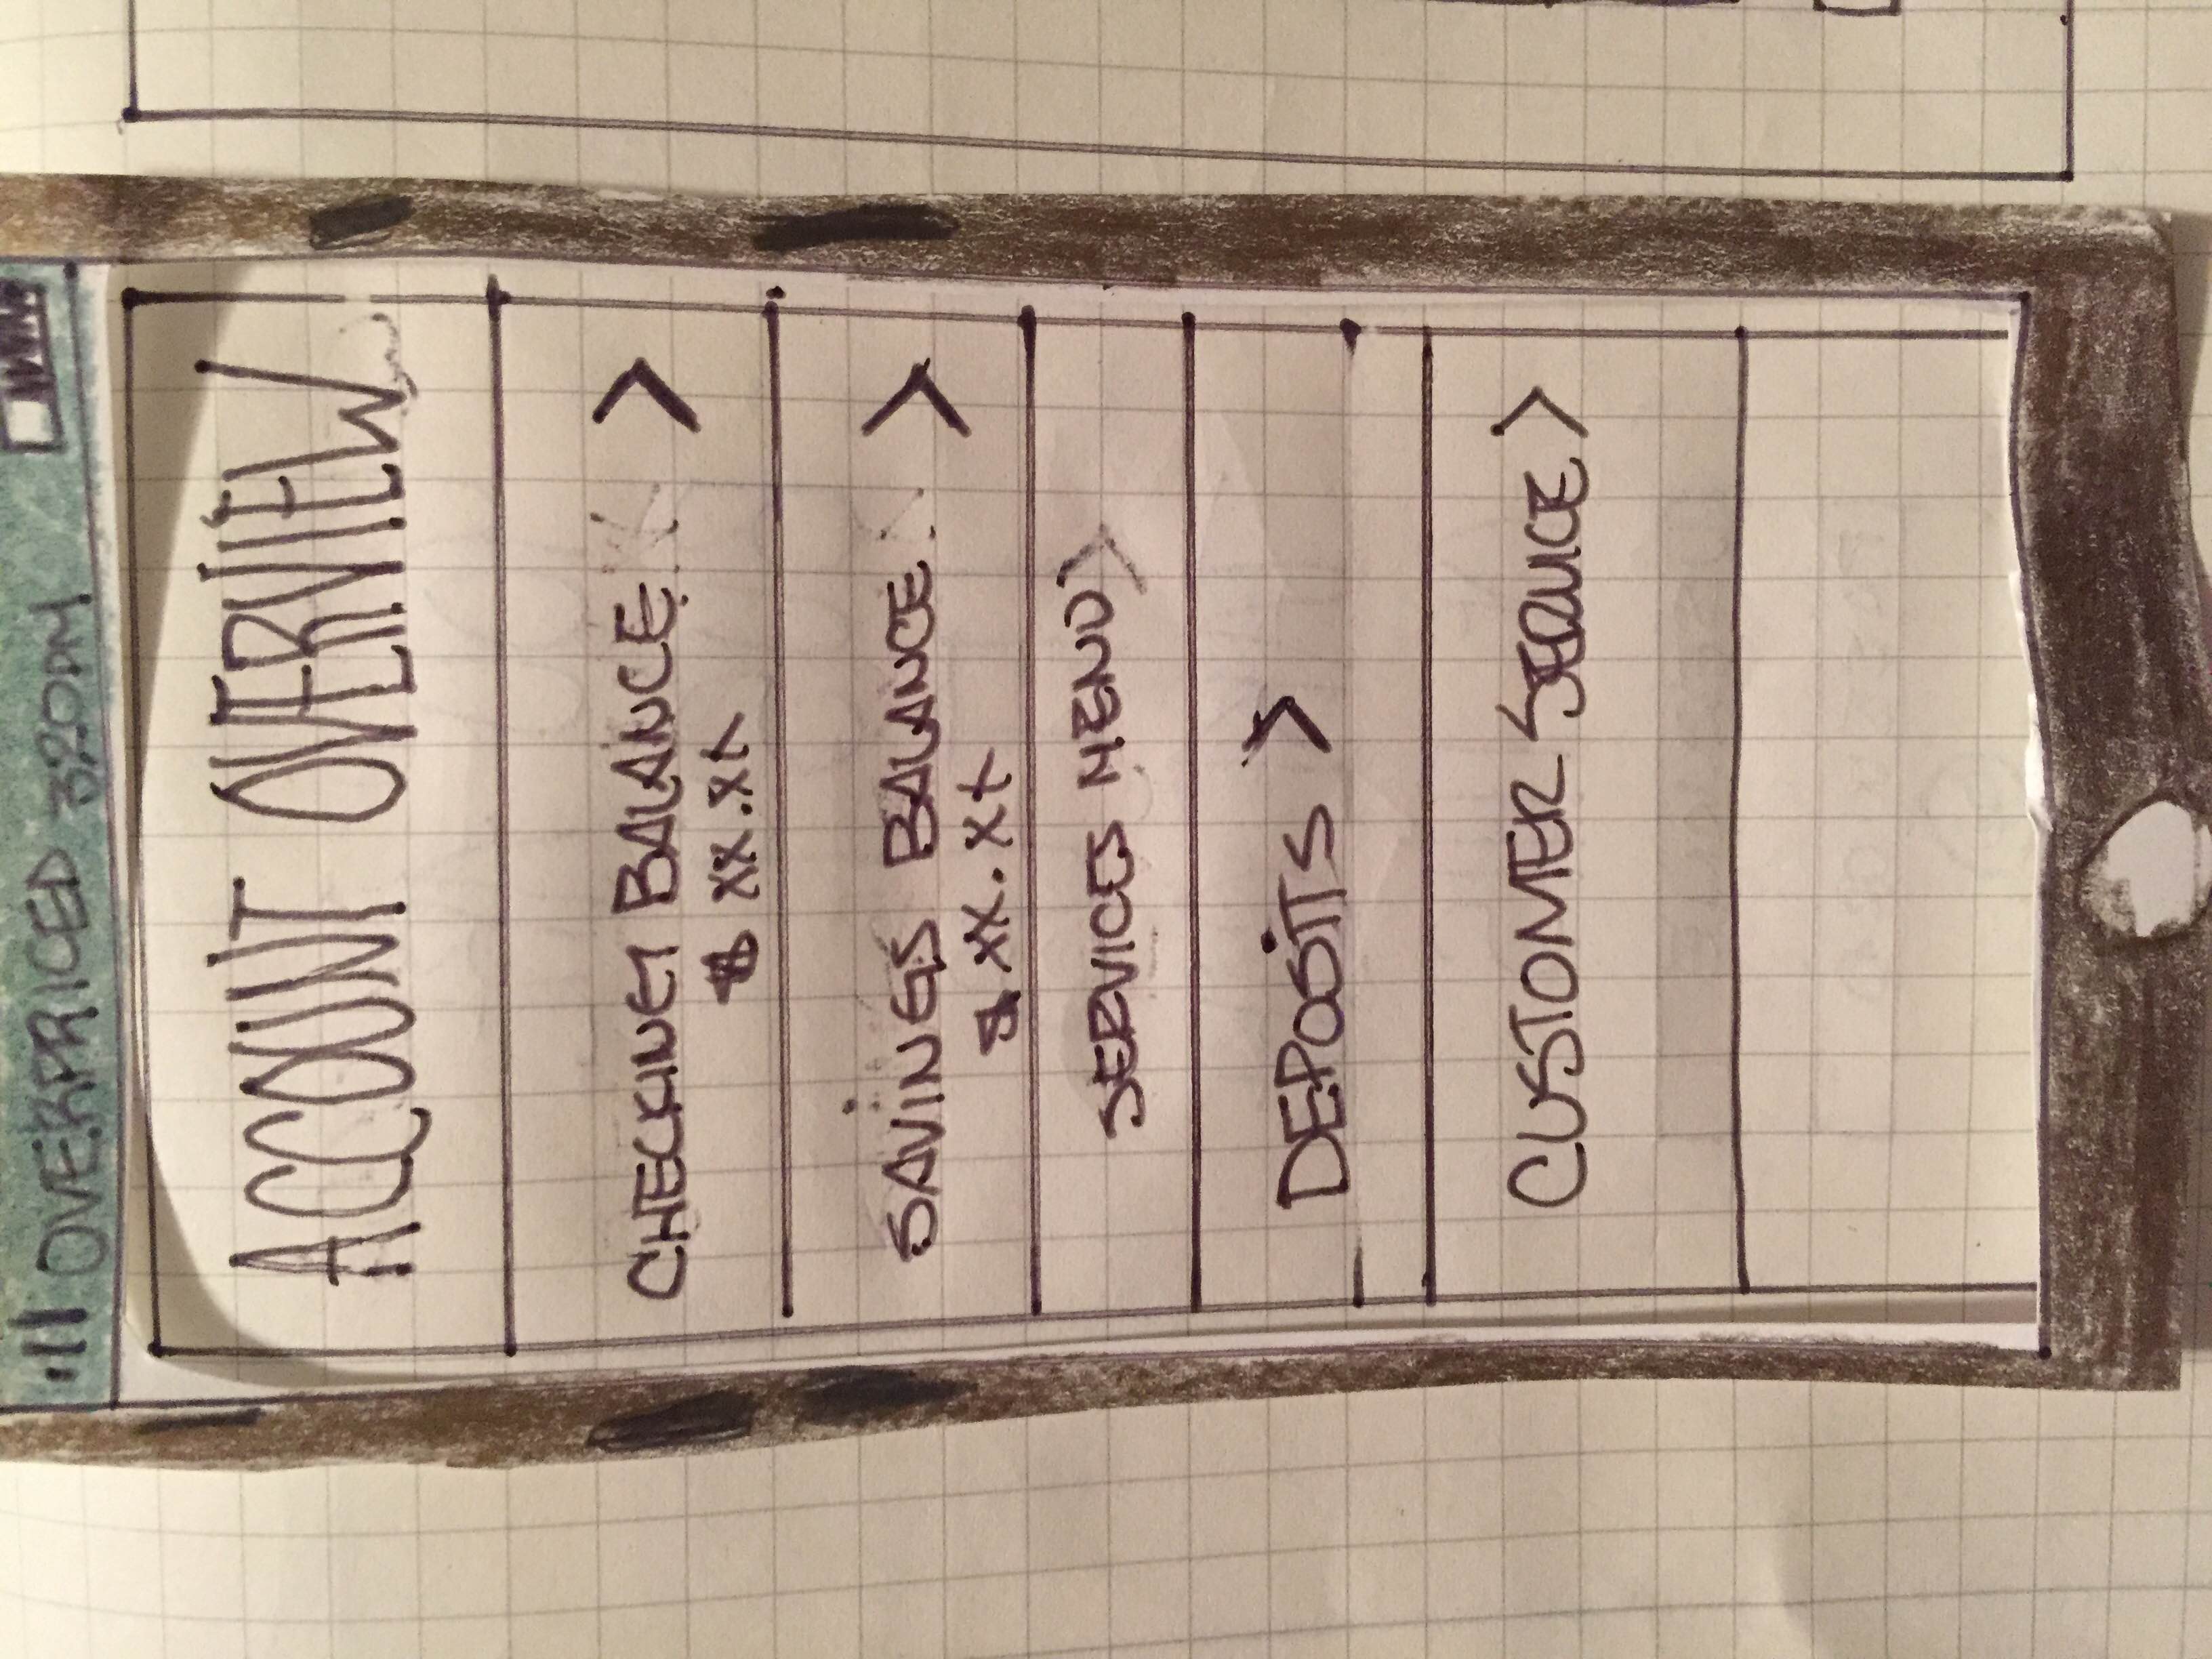 OVERPRICED 320PM
ACCOUNT OVERVIEW
CHECKING BALANCE >
$ XX.XX
SAVINGS BALANCE >
$ XX.XX
SERVICES MENU >
DEPOSITS >
CUSTOMER SERVICE >